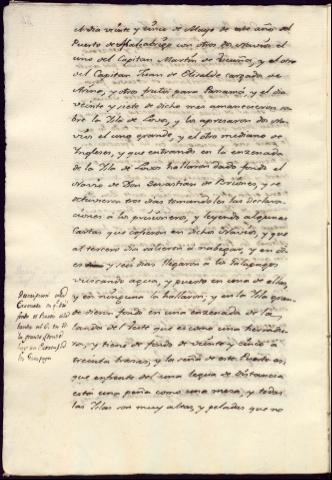 el dia veinte y cinco de Mayo de este año del
Puerto de Malabrigo con otros dos Navios el
uno del Capitan Martin de          , y el otro
del Capitan Juan de Olisalde cargado de
Arina, y otros frutos para Panamá, y el dia
veinte y siete de dicho mes amanecieron so-
bre la Isla de Lovos, y los apresaron dos Na-
vios el uno grande, y el otro mediano de
Ingleses, y que entrando en la ensenada
de la Isla de Lovos hallaron dado fondo el
Navio de Don Sevastian de Briones, y se
detuvieron tres dias tomandoles las declara-
ciones à los prisioneros, y leyendo algunas
Cartas que cogieron en dichos Navios, y que
al tercero dia salieron à nabegar, y en di-
es y seis dias llegaron à los Galapagos
vuscando agua, y puerto en una de ellas,
y en ninguna la hallaron; y en la Isla gran-
de dieron fondo en una ensenada de la
vanda del Leste que es como una herradu-
ra, y tiene de fondo de veinte y cinco à
treinta brazas, y la seña de este Puerto es,
que enfrente del una legua de distancia
está una peña como una mesa, y todas
las Islas son muy altas, y peladas que no